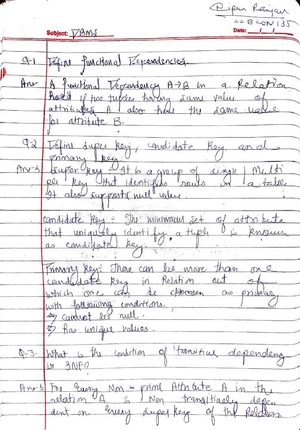 Subject: DBMS
Date:
Q-1 Define functional Dependencies.
Ans- A functional Dependency A→B in a Relation
holds if two tuples having same value of
attribute A also have the same value
for attribute B.
Q.2 Define super key, candidate key and
primary key.
Ans- Super key - It is a group of single / Multi
ple key that identifies rows in a table.
It also supports null value.
Candidate key - The minimum set of attribute
that uniquely identify a tuple is known
as candidate key.
Primary key: There can be more than one
candidate key in Relation out of
which one can be choosen as primary
with following conditions.
→ cannot be null.
→ has unique values.
Q-3. What is the condition of transitive dependency
in 3NF?
Ans-3 For Every Non-prime Attribute A in the
relation A is Non transitively depen
dent on Every super key of the Relation